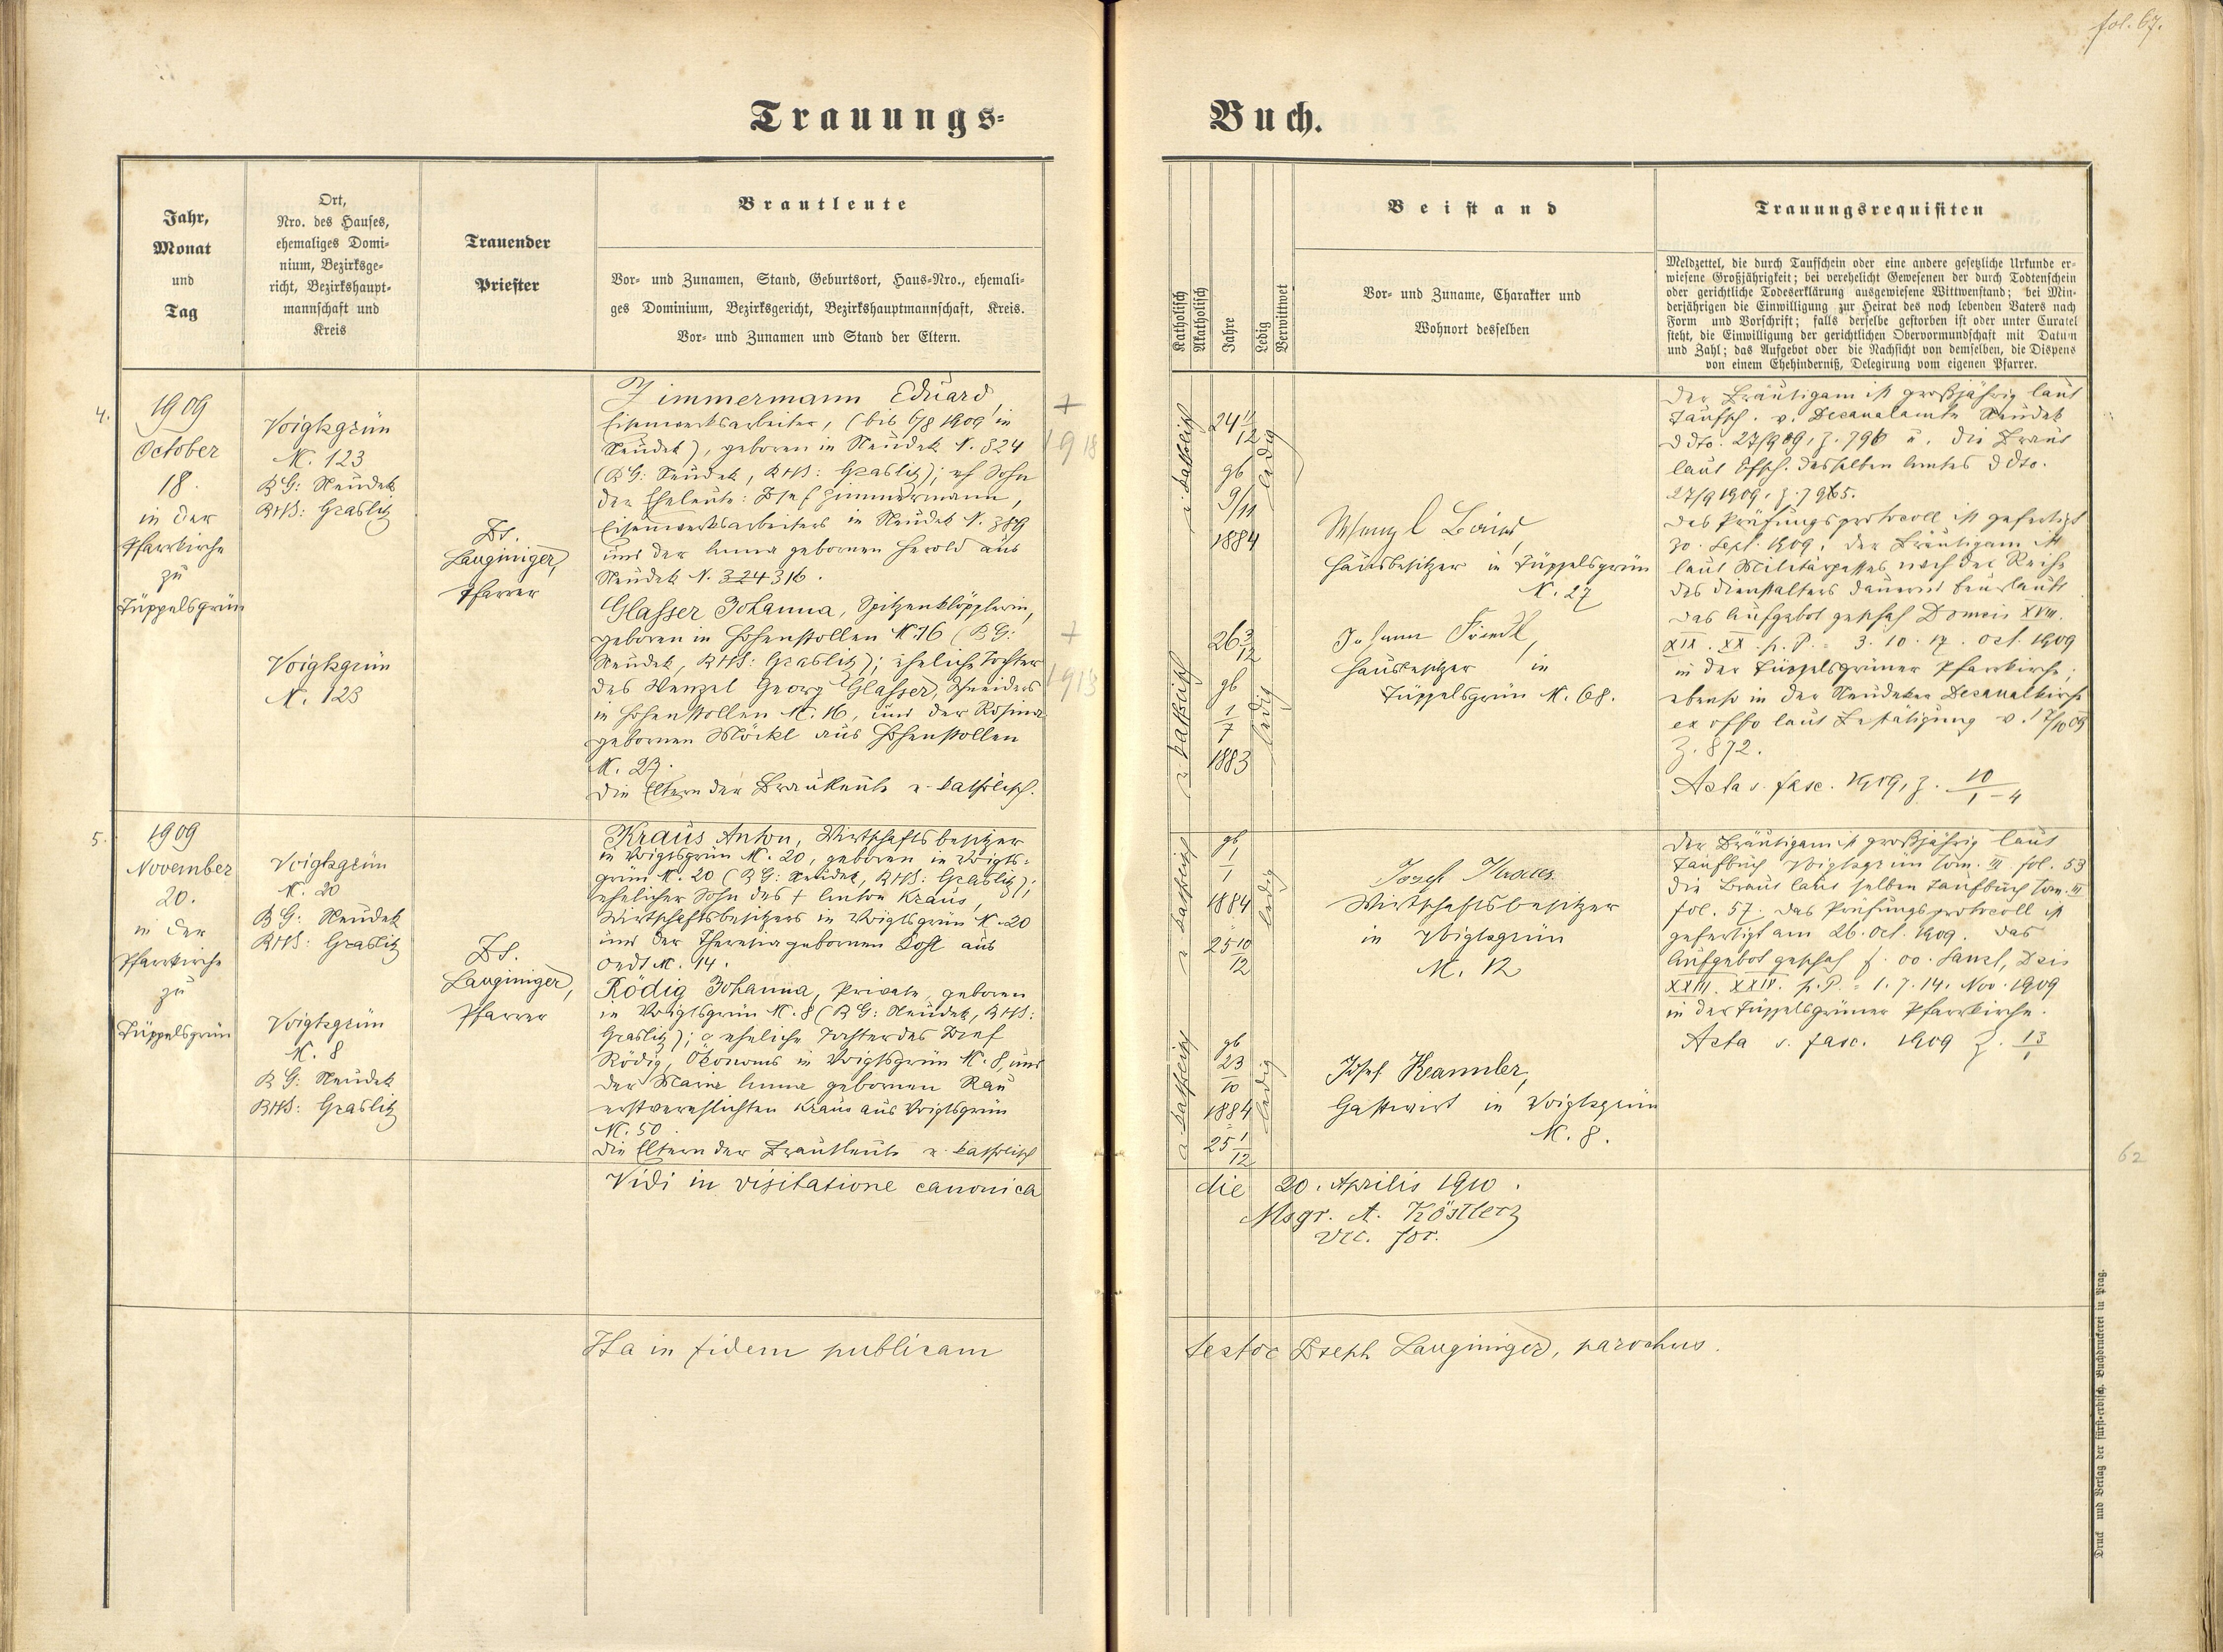 fol. 67.
Trauungs-
Buch.
Jahr,
Monat
und
Tag
Ort,
Nro. des Hauses,
ehemaliges Domi-
nium, Bezirksge-
richt, Bezirkshaupt-
mannschaft und
Kreis
Trauender
Priester
Brautleute
Vor- und Zunamen, Stand, Geburtsort, Haus-Nro., ehemali-
ges Dominium, Bezirksgericht, Bezirkshauptmannschaft, Kreis.
Vor- und Zunamen und Stand der Eltern.
Katholisch
Akatholisch
Jahre
Ledig
Verwittwet
Beistand
Vor- und Zuname, Charakter und
Wohnort desselben
Trauungsrequisiten
Meldzettel, die durch Taufschein oder eine andere gesetzliche Urkunde er-
wiesene Großjährigkeit; bei verehelicht Gewesenen der durch Todtenschein
oder gerichtliche Todeserklärung ausgewiesene Wittwenstand; bei Min-
derjährigen die Einwilligung zur Heirat des noch lebenden Vaters nach
Form und Vorschrift; falls derselbe gestorben ist oder unter Curatel
steht, die Einwilligung der gerichtlichen Obervormundschaft mit Datum
und Zahl; das Aufgebot oder die Nachsicht von demselben, die Dispens
von einem Ehehinderniß, Delegirung vom eigenen Pfarrer.
4.
1909
October
18.
in der
Pfarrkirche
zu
Tüppelsgrün
Voigtsgrün
N. 123
BG: Neudek
BHS: Graslitz
Voigtsgrün
N. 123
Js.
Lauginiger,
Pfarrer
Zimmermann Eduard,
Eisenwerksarbeiter, (bis 6/8 1909 in
Neudek), geboren in Neudek N. 324
(BG: Neudek, BHS: Graslitz); eh Sohn
der Eheleute: Josef Zimmermann,
Eisenwerksarbeiters in Neudek N. 389
und der Anna gebornen Herold aus
Neudek N. 324 316.
Glasser Johanna, Spitzenklöpplerin,
geboren in Hohenstollen N. 16 (BG:
Neudek, BHS: Graslitz); eheliche Tochter
des Wenzel Georg Glasser, Schneiders
in Hohenstollen N. 16, und der Rosina
gebornen Möckl aus Hohenstollen
N. 27.
Die Eltern der Brautleute r. katholisch.
+
1918
+
1913
r. katholisch
24 11/12
gb
9/11
1884
ledig
r. katholisch
26 3/12
gb
1/7
1883
ledig
Wenzl
Hausbesitzer in Tüppelsgrün
N. 27
Johann Friedl,
Hausbesitzer in
Tüppelsgrün N. 68.
Der Bräutigam ist großjährig laut
Taufsch. v. Decanalamte Neudek
ddto. 27/9 09, z. 796 u. die Braut
laut desselben Amtes ddto.
27/9 1909, z. 7965.
Das Prüfungsprotocoll ist gefertigt
30. Sept. 1909. Der Bräutigam ist
laut Militärpasses nach der Reihe
des Dienstalters dauernd beurlaubt
Das Aufgebot geschah Domcis XVIII.
XIX. XX. p. P. = 3. 10. 17. Oct. 1909
in der Tüppelsgrüner Pfarrkirche;
ebenso in der Neudeker Decanalkirche
ex offo laut Bestätigung v. 17/10 09
z. 872.
Acta s. fasc. 1909, z. 10/1-4
5.
1909
November
20.
in der
Pfarrkirche
zu
Tüppelsgrün
Voigtsgrün
N. 20
BG: Neudek
BHS: Graslitz
Voigtsgrün
N. 8
BG: Neudek
BHS: Graslitz
Js.
Lauginiger,
Pfarrer
Kraus Anton, Wirtschaftsbesitzer
in Voigtsgrün N. 20, geboren in Voigts-
grün N. 20 (BG: Neudek, BHS: Graslitz);
ehelicher Sohn des + Anton Kraus,
Wirtschaftsbesitzers in Voigtsgrün N. 20
und der Theresia gebornen Dost aus
Oedt N. 14.
Rödig Johanna, Private, geboren
in Voigtsgrün N. 8 (BG: Neudek, BHS:
Graslitz); eheliche Tochter des Josef
Rödig, Ökonoms in Voigtsgrün N. 8, und
der Maria Anna gebornen Rau
erstverehlichten Kraus aus Voigtsgrün
N. 50.
Die Eltern der Brautleute r. katholisch
r. katholisch
gb
1/1
1884
25 10/12
ledig
r. katholisch
gb
23/10
1884
25 1/12
ledig
Josef Kraus
Wirtschaftsbesitzer
in Voigtsgrün
N. 12
Josef Kammler,
Gastwirt in Voigtsgrün
N. 8.
Der Bräutigam ist großjährig laut
Taufbuch Voigtsgrün tom. III fol. 53
die Braut laut selben Taufbuch tom. III
fol. 57. Das Prüfungsprotocoll ist
gefertigt am 26. Oct. 1909. Das
Aufgebot geschah f. oo. Sanct, Dcis
XXIII. XXIV. p. P. = 1. 7. 14. Nov. 1909
in der Tüppelsgrüner Pfarrkirche.
Acta s. fasc. 1909 z. 13/1
Vidi in visitatione canonica
die 20. Aprilis 1910.
Msgr. A. Köstlerz
vic. for.
62
Ita in fidem publicam
testor Joseph Lauginiger, parochus.
Druck und Verlag der fürst-erzbisch. Buchdruckerei in Prag.